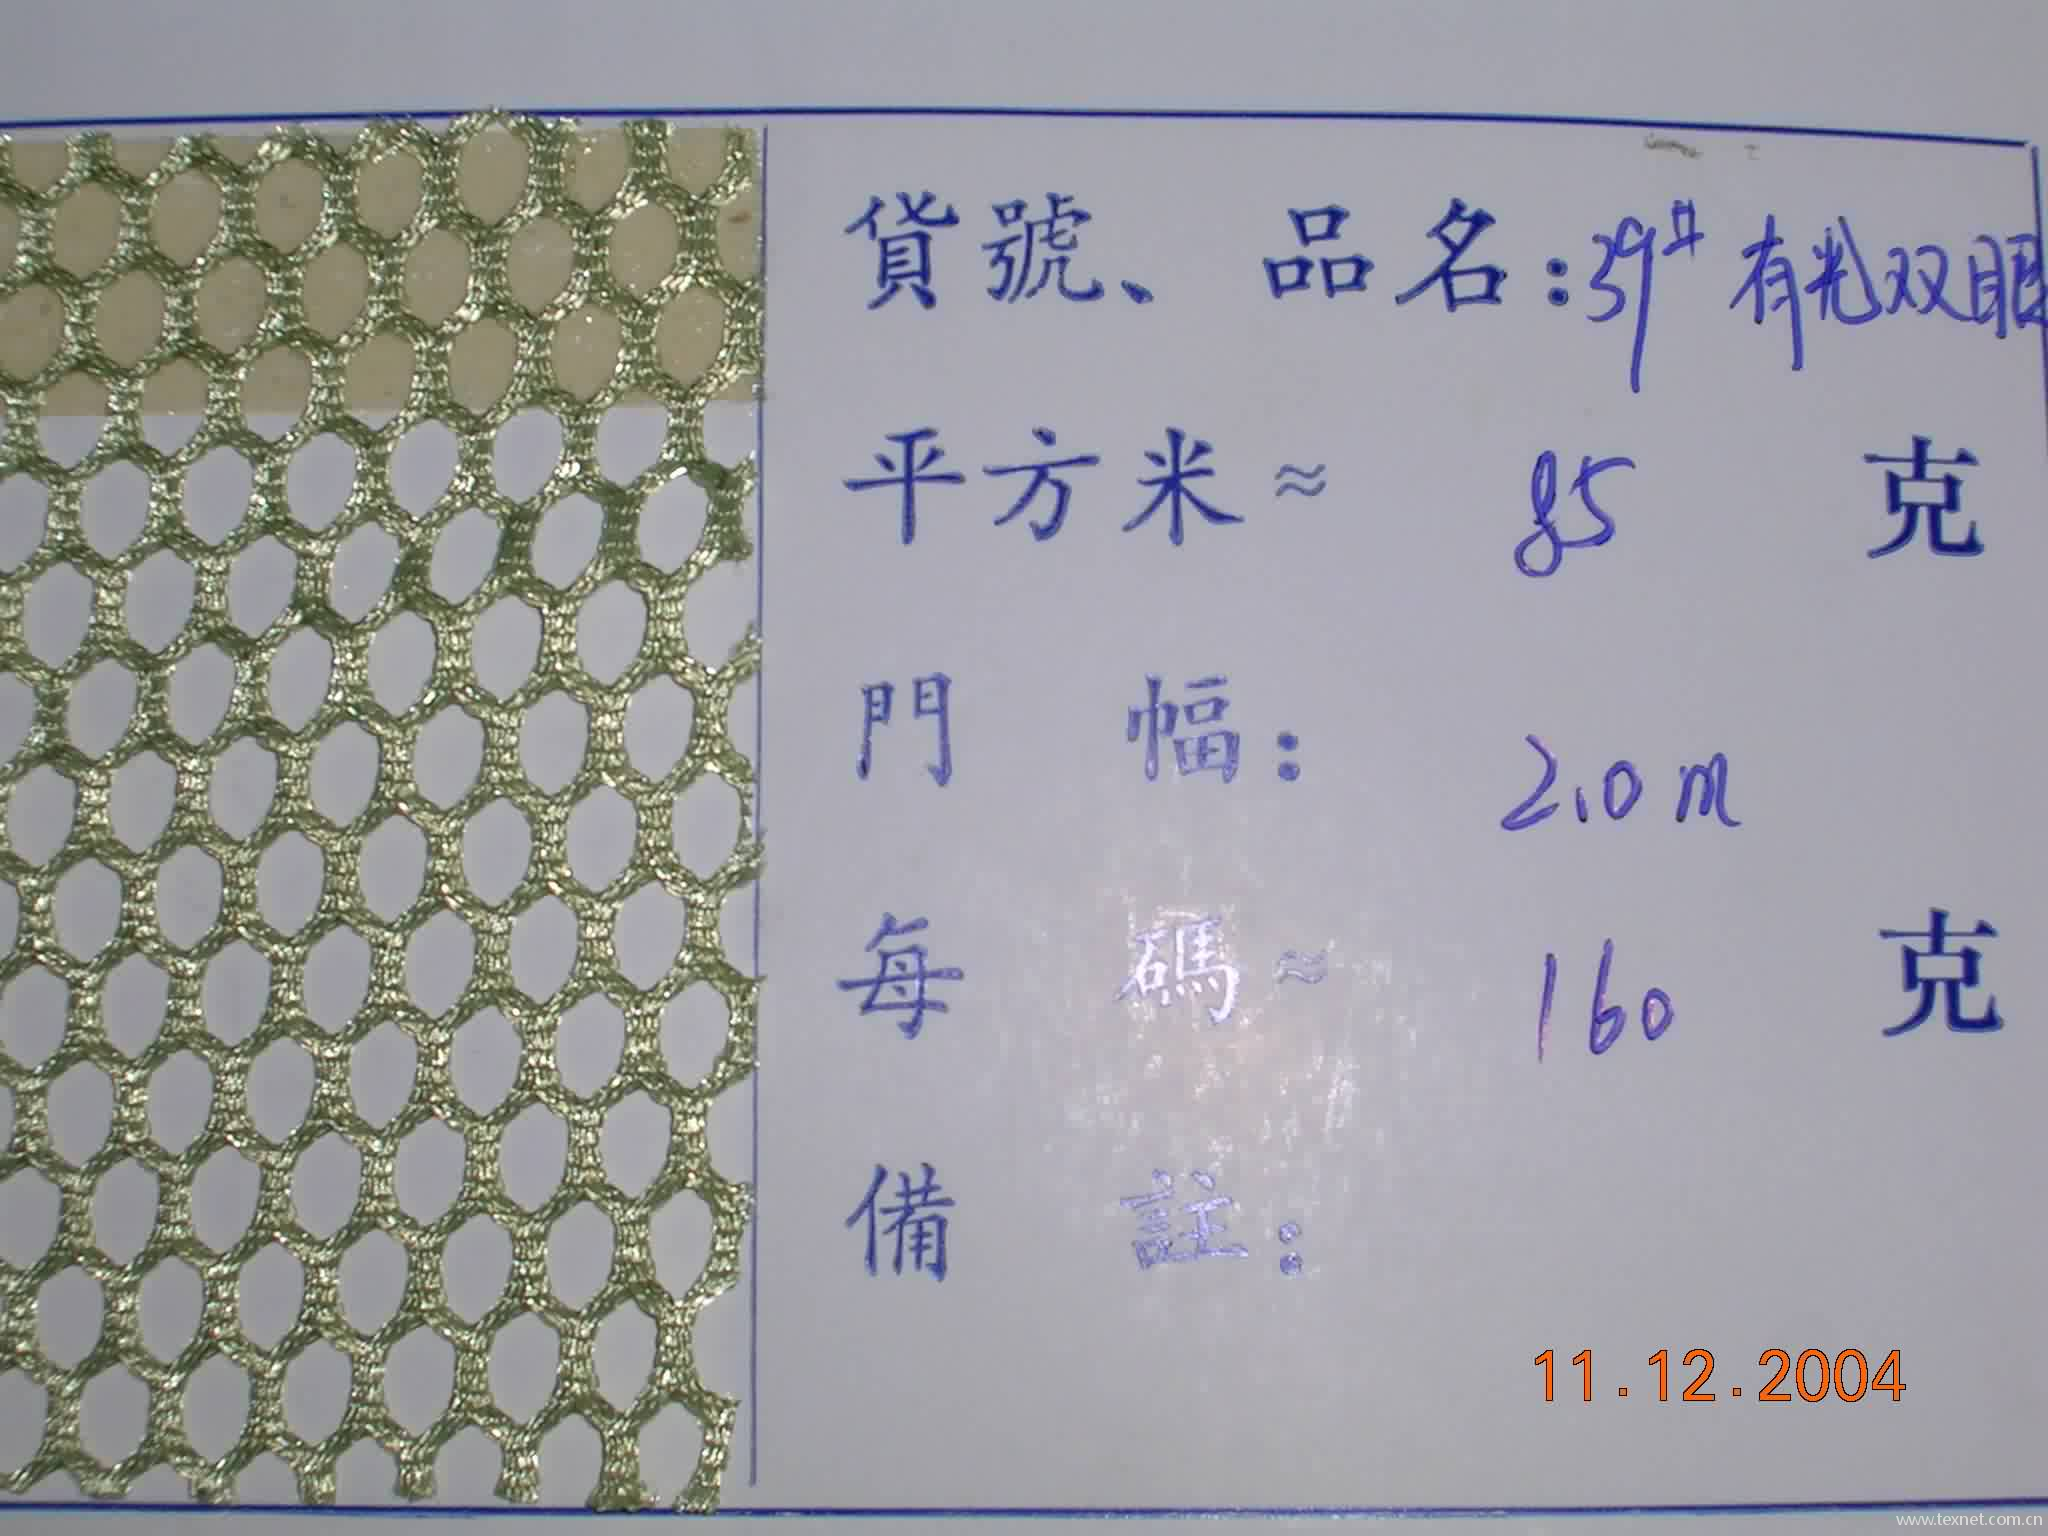 貨號、品名:39# 有光双眼
平方米≈ 85 克
門幅: 2.0m
每碼≈ 160 克
備註:
11.12.2004
www.texnet.com.cn